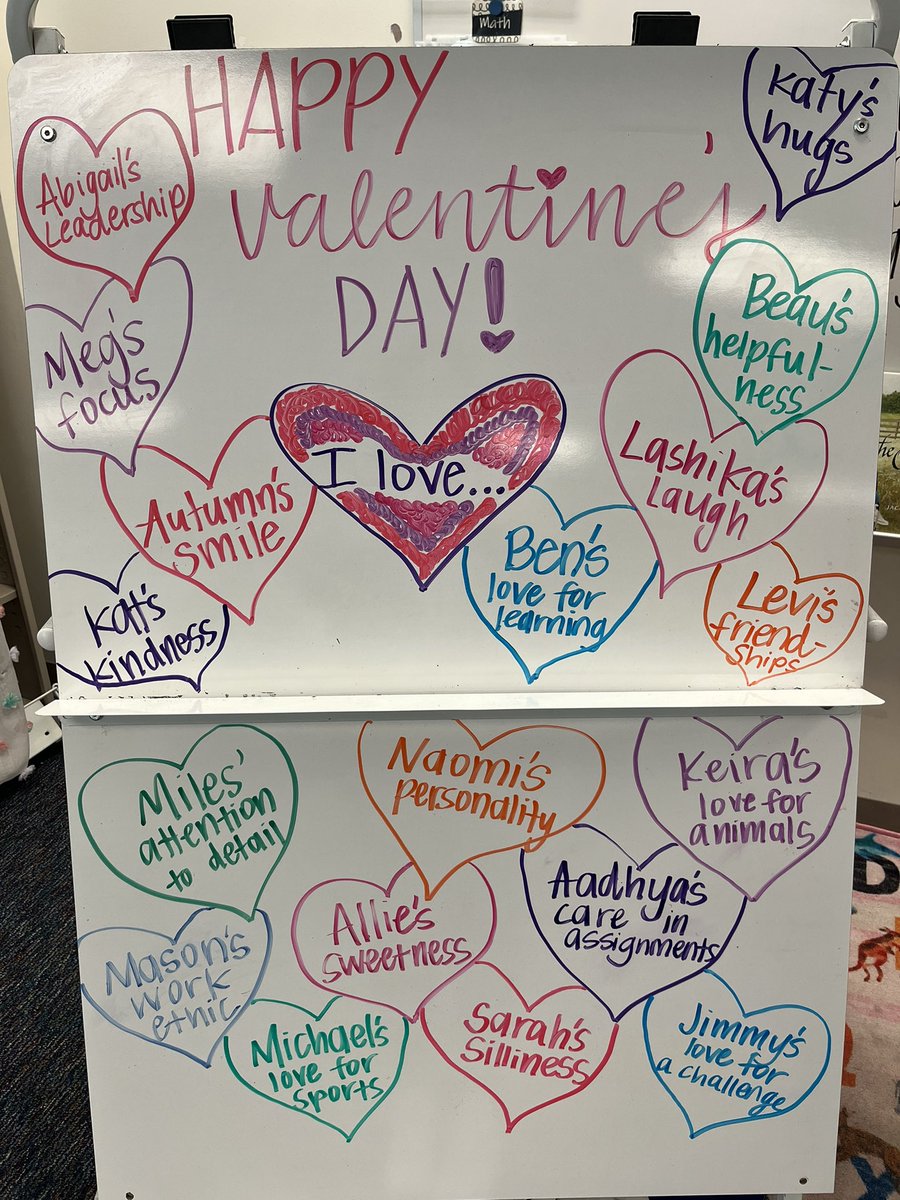 Math
HAPPY
Valentine's
DAY!
Katy's
hugs
Abigail's
Leadership
Beau's
helpful-
ness
Meg's
focus
I love...
Lashika's
Laugh
Autumn's
smile
Ben's
love for
learning
Levi's
friend-
ships
Kat's
kindness
Miles'
attention
to detail
Naomi's
personality
Keira's
love for
animals
Aadhya's
care in
assignments
Allie's
sweetness
Mason's
work
ethic
Michael's
love for
sports
Sarah's
Silliness
Jimmy's
love for
a challenge